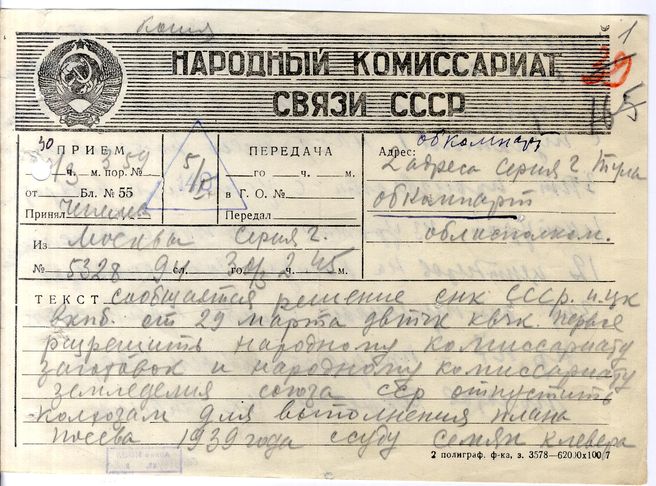 Копия
1
165
НАРОДНЫЙ КОМИССАРИАТ
СВЯЗИ СССР
ПРИЕМ
30/3 ч. м. пор. № 359
от Бл. № 55
Принял
5/IV
ПЕРЕДАЧА
го ч. м.
в Г. О. №
Передал
Адрес: обкомпарт
2 адреса серия г. Тула
обкомпарт
облисполком.
Из Москвы серия г.
№ 5328 94 сл. 30/3 2 ч. 45 м.
ТЕКСТ Сообщается решение снк СССР. и цк
вкпб. от 29 марта двтчк квчк. первое
разрешить народному комиссариату
заготовок и народному комиссариату
земледелия союза сср отпустить
колхозам для выполнения плана
посева 1939 года ссуду семян клевера
2 полиграф. ф-ка, з. 3578—62000х100 7